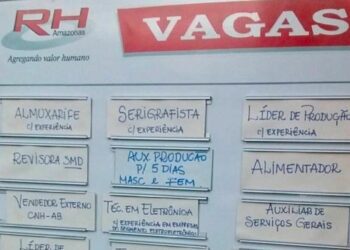 RH
Amazonas
Agregando valor humano
VAGAS
ALMOXARIFE
C/ EXPERIÊNCIA
SERIGRAFISTA
C/ EXPERIÊNCIA
LÍDER DE PRODUÇÃO
C/ EXPERIÊNCIA
REVISORA SMD
AUX PRODUCAO
P/ 5 DIAS
MASC e FEM
ALIMENTADOR
VENDEDOR EXTERNO
CNH-AB
TÉC. EM ELETRÔNICA
C/ EXPERIÊNCIA EM EMPRESAS
DO SEGMENTO ELETROELETRÔNICO
AUXILIAR DE
SERVIÇOS GERAIS
LÍDER DE